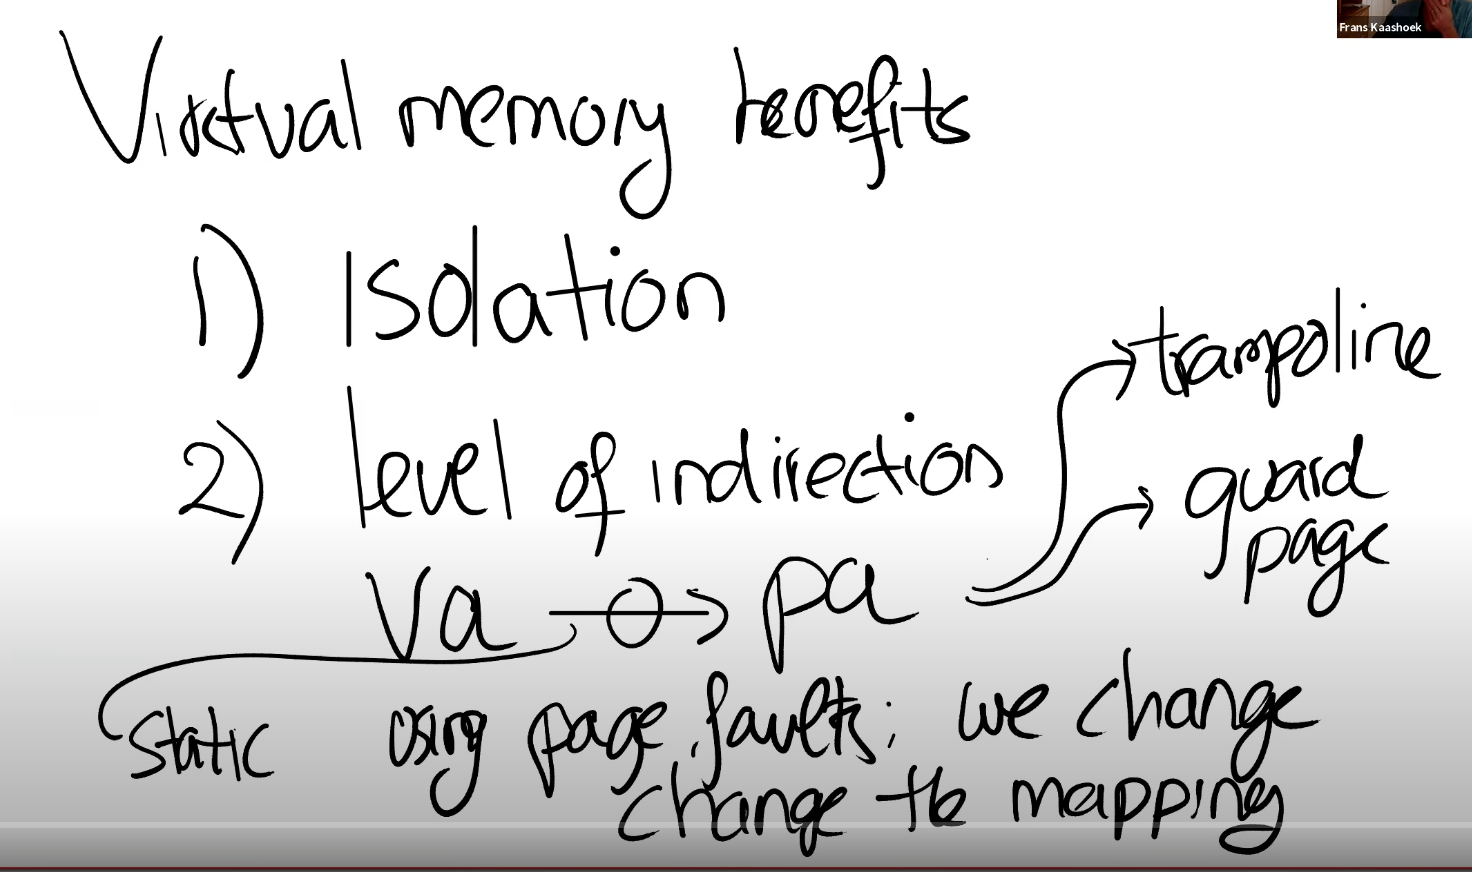 Frans Kaashoek
Virtual memory benefits
1) Isolation
2) level of indirection
trampoline
guard
page
va → pa
static using page faults; we change
change the mapping